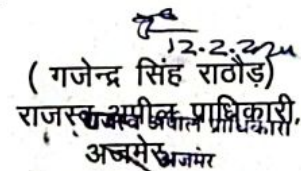 12.2.2024
( गजेन्द्र सिंह राठौड़)
राजस्व अपील प्राधिकारी,
राजस्व अपील प्राधिकारी
अजमेर
अजमेर